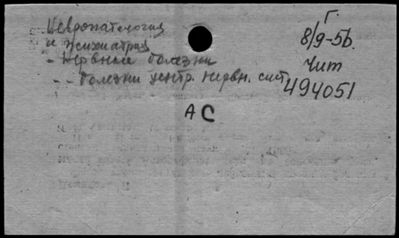 Невропатология
и психиатрия
- Нервные болезни
- - Болезни центр. нервн. сист.
Г.
8/9-56.
Чит
494051
АС